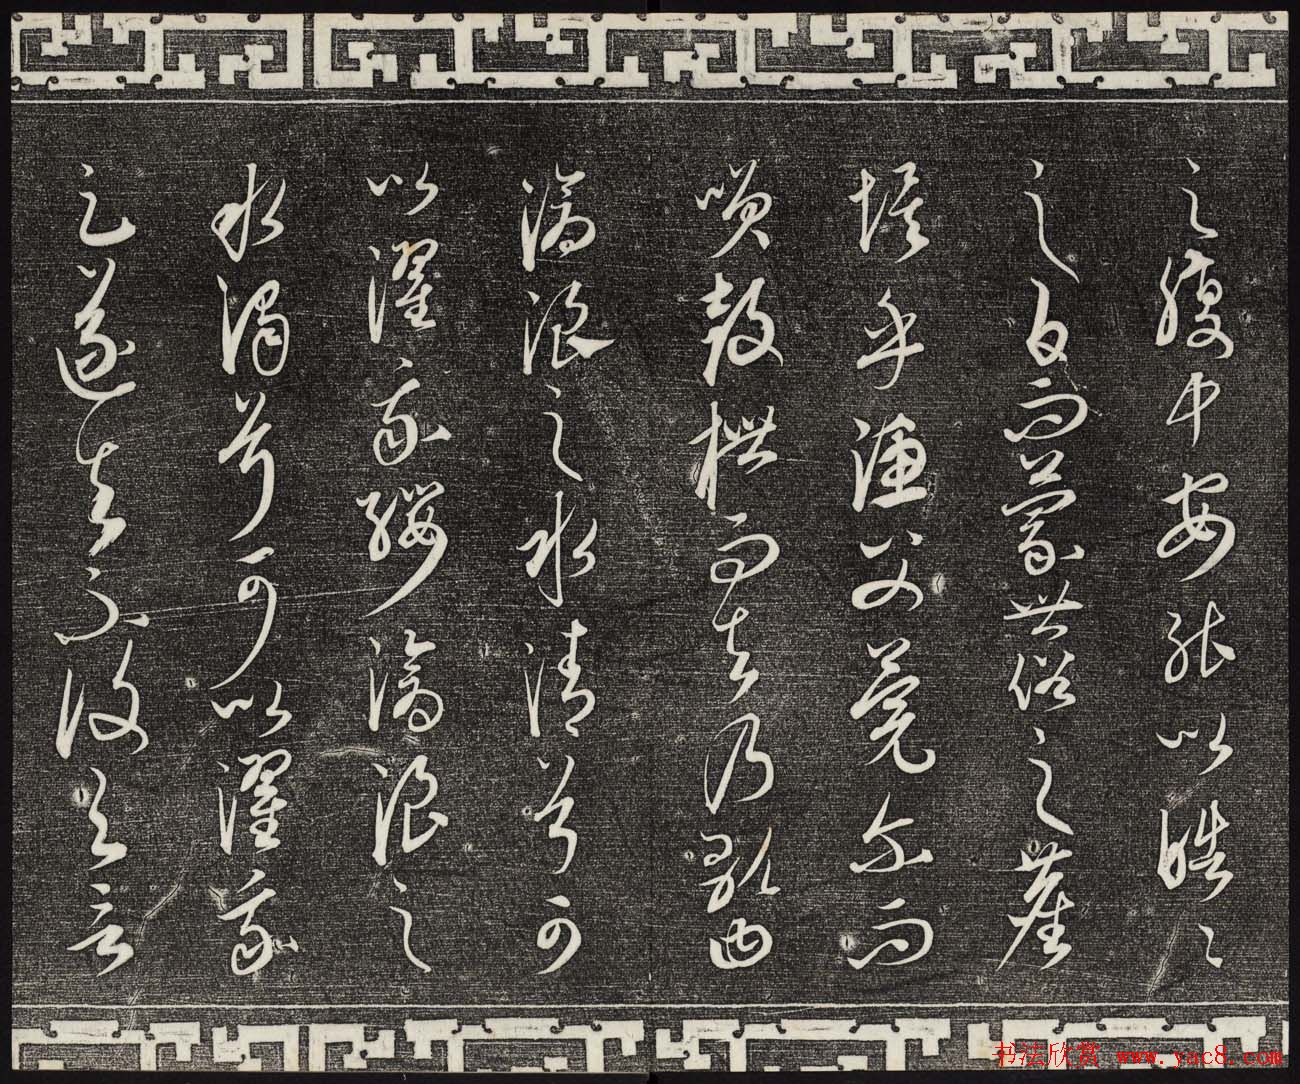 之腹中安能以皓〻
之白而蒙世俗之塵
埃乎漁父莞尔而
笑鼓枻而去乃歌曰
滄浪之水清兮可
以濯我纓滄浪之
水濁兮可以濯我
足遂去不復与言
书法欣赏 www.yac8.com